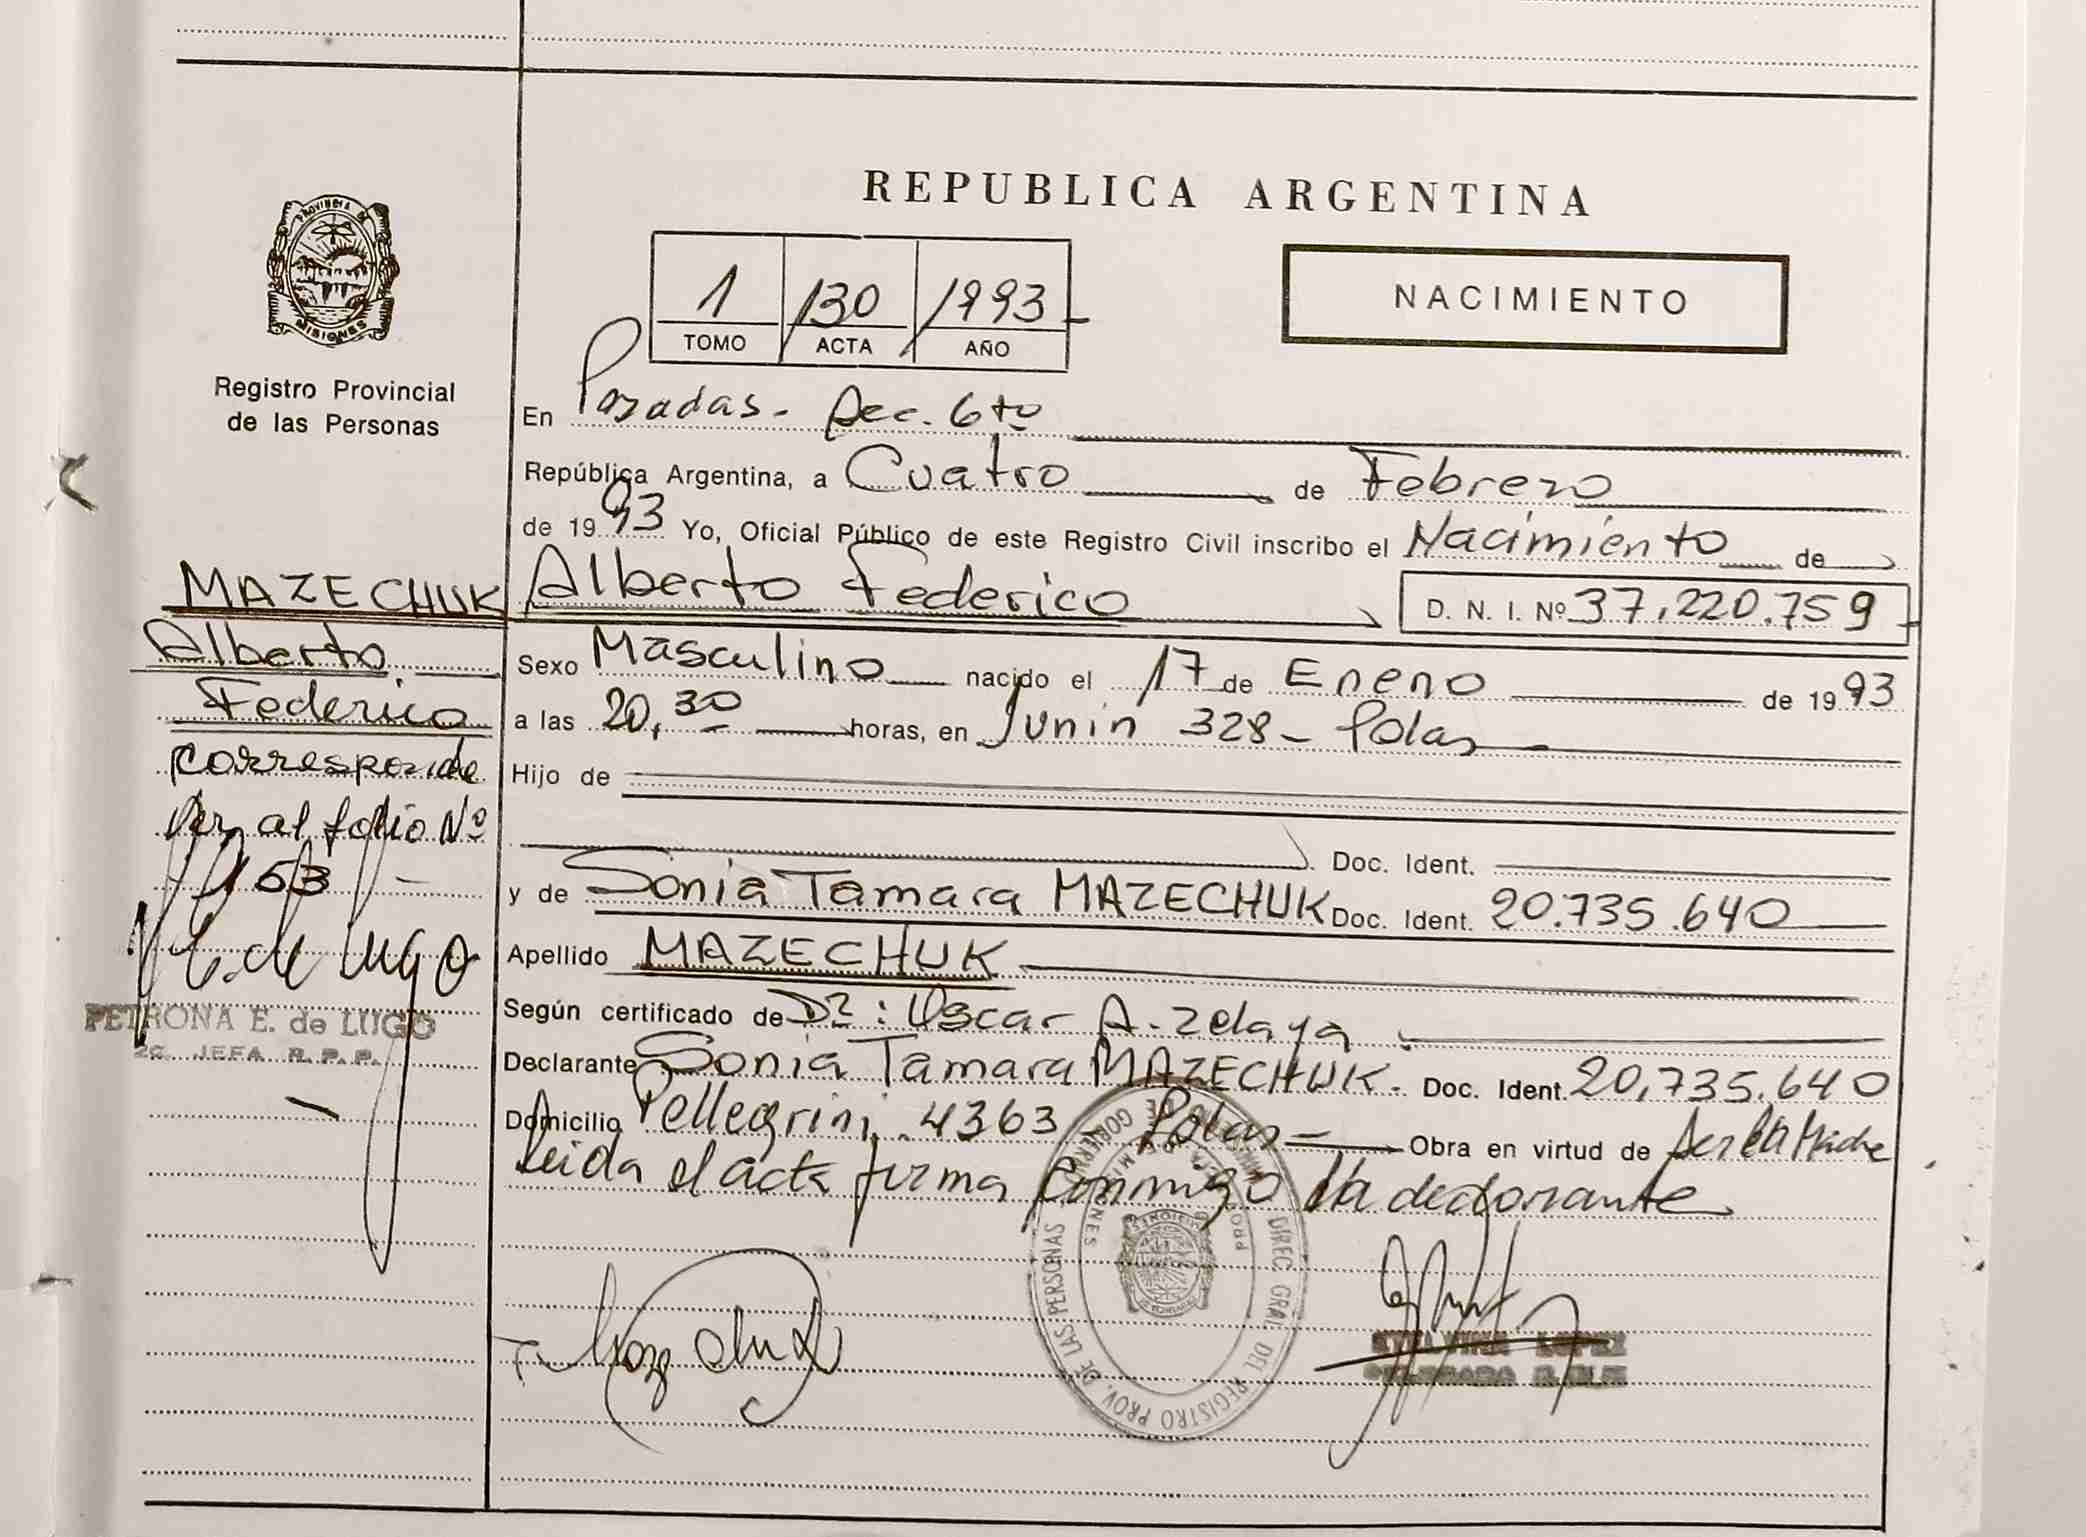 REPUBLICA ARGENTINA
PROVINCIA DE
MISIONES
Registro Provincial
de las Personas
1 130 1993
TOMO ACTA AÑO
NACIMIENTO
En Posadas - Sec. 6to
República Argentina, a Cuatro de Febrero
de 1993 Yo, Oficial Público de este Registro Civil inscribo el Nacimiento de
Alberto Federico D. N. I. Nº 37.220.759
Sexo Masculino nacido el 17 de Enero de 1993
a las 20,30 horas, en Junin 328 - Pdas
Hijo de
Doc. Ident.
y de Sonia Tamara MAZECHUK Doc. Ident. 20.735.640
Apellido MAZECHUK
Según certificado de Dr: Oscar A. Zelaya
Declarante Sonia Tamara MAZECHUK. Doc. Ident. 20,735.640
Domicilio Pellegrini 4363 - Pdas - Obra en virtud de Ser la Madre
Leida el acta firma conmigo la declarante
MAZECHUK
Alberto
Federico
corresponde
ver al folio Nº
153
E. de Lugo
PETRONA E. de LUGO
2a. JEFA R.P.P.
DIREC. GRAL DEL REGISTRO PROV. DE LAS PERSONAS
LOPEZ